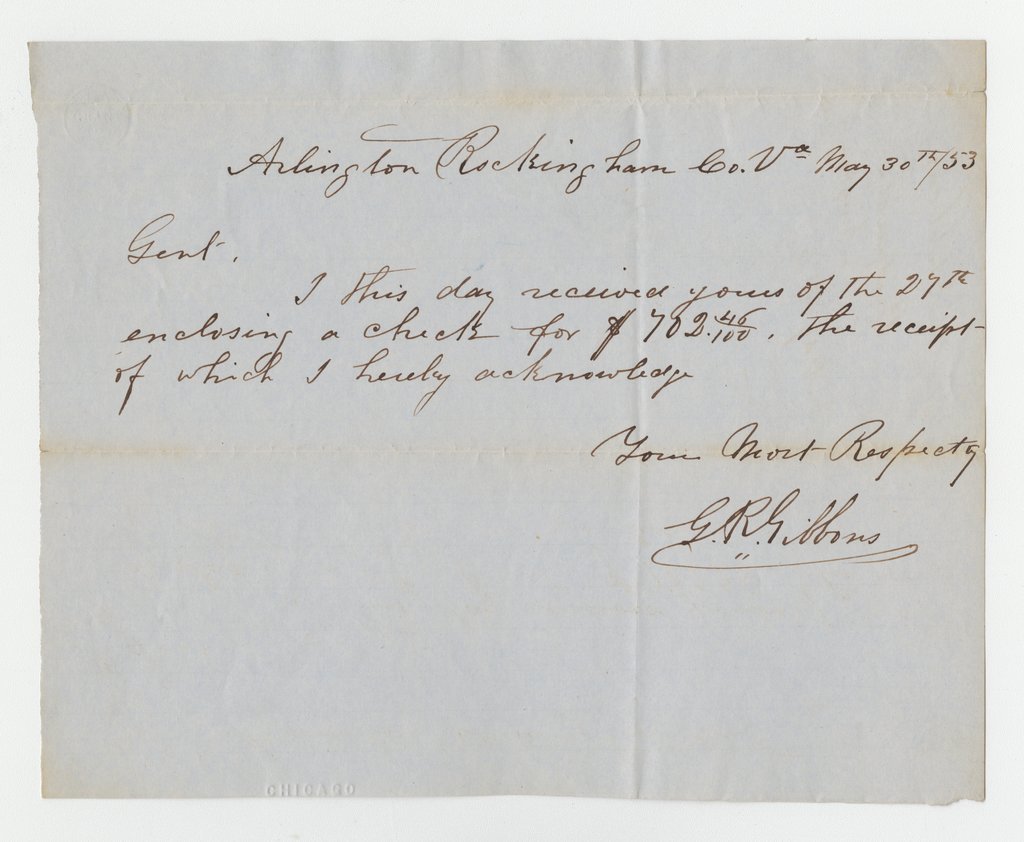 Arlington Rockingham Co. Va May 30th/53
Gent.
I this day received yours of the 27th
enclosing a check for $702.46/100. The receipt
of which I hereby acknowledge
Your Most Respecty
G.R. Gibbons
CHICAGO